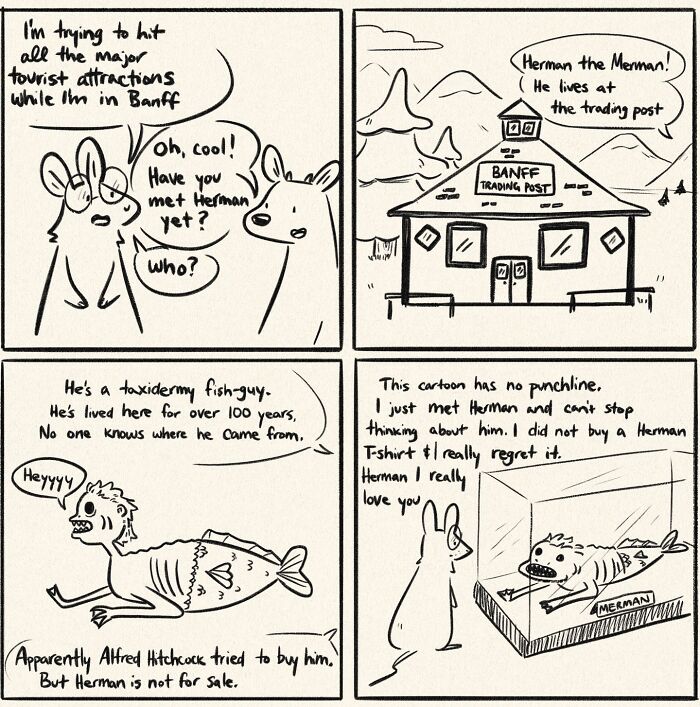 I'm trying to hit
all the major
tourist attractions
while I'm in Banff
Oh, cool!
Have you
met Herman
yet?
Who?
Herman the Merman!
He lives at
the trading post
BANFF
TRADING POST
He's a taxidermy fish-guy.
He's lived here for over 100 years.
No one knows where he came from.
Heyyyy
Apparently Alfred Hitchcock tried to buy him.
But Herman is not for sale.
This cartoon has no punchline.
I just met Herman and can't stop
thinking about him. I did not buy a Herman
T-shirt & I really regret it.
Herman I really
love you
MERMAN